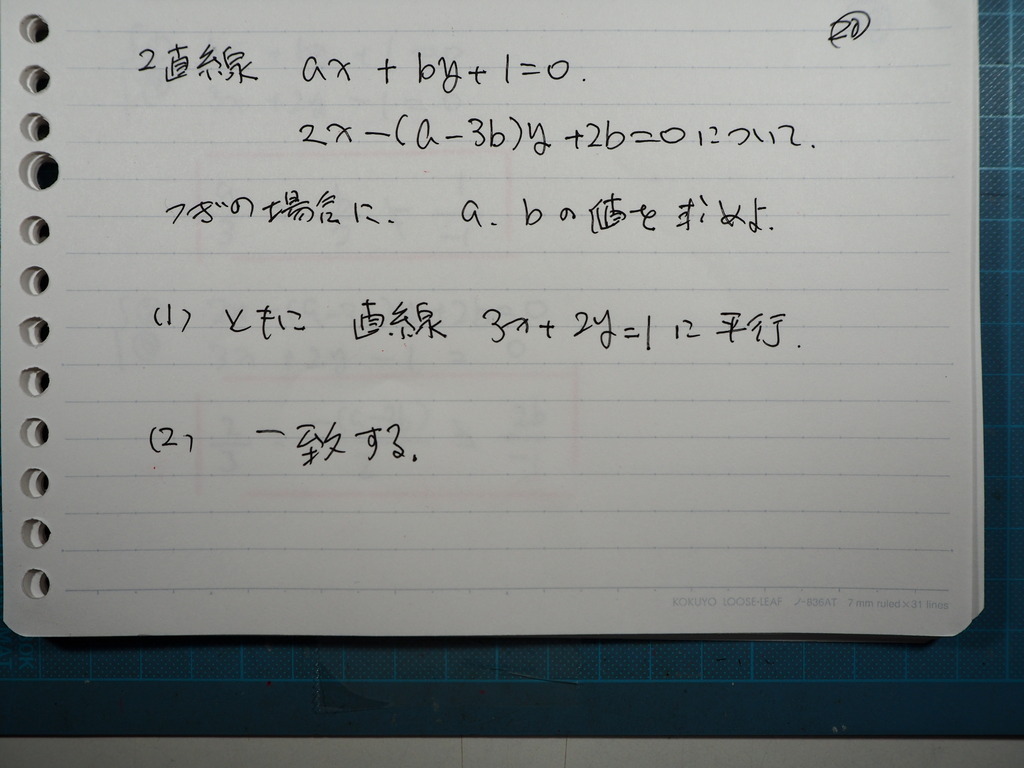 2直線 ax + by + 1 = 0.
2x - (a - 3b)y + 2b = 0 について.
つぎの場合に、 a、bの値を求めよ.
(1) ともに 直線 3x + 2y = 1 に平行.
(2) 一致する.
KOKUYO LOOSE-LEAF ノ-836AT 7 mm ruled × 31 lines